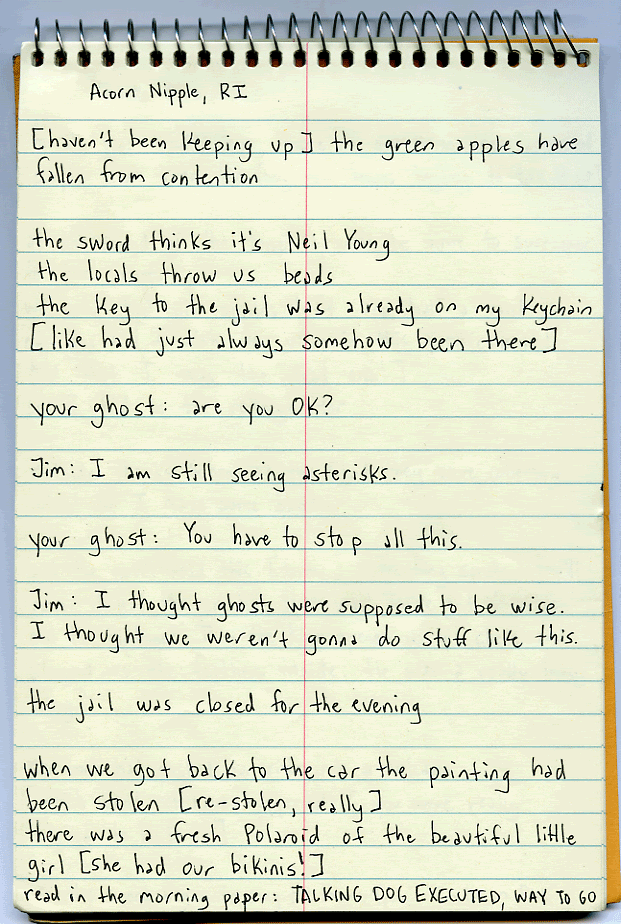 Acorn Nipple, RI
[haven't been keeping up] the green apples have
fallen from contention
the sword thinks it's Neil Young
the locals throw us beads
the key to the jail was already on my keychain
[like had just always somehow been there]
your ghost: are you OK?
Jim: I am still seeing asterisks.
your ghost: You have to stop all this.
Jim: I thought ghosts were supposed to be wise.
I thought we weren't gonna do stuff like this.
the jail was closed for the evening
when we got back to the car the painting had
been stolen [re-stolen, really]
there was a fresh Polaroid of the beautiful little
girl [she had our bikinis!]
read in the morning paper: TALKING DOG EXECUTED, WAY TO GO